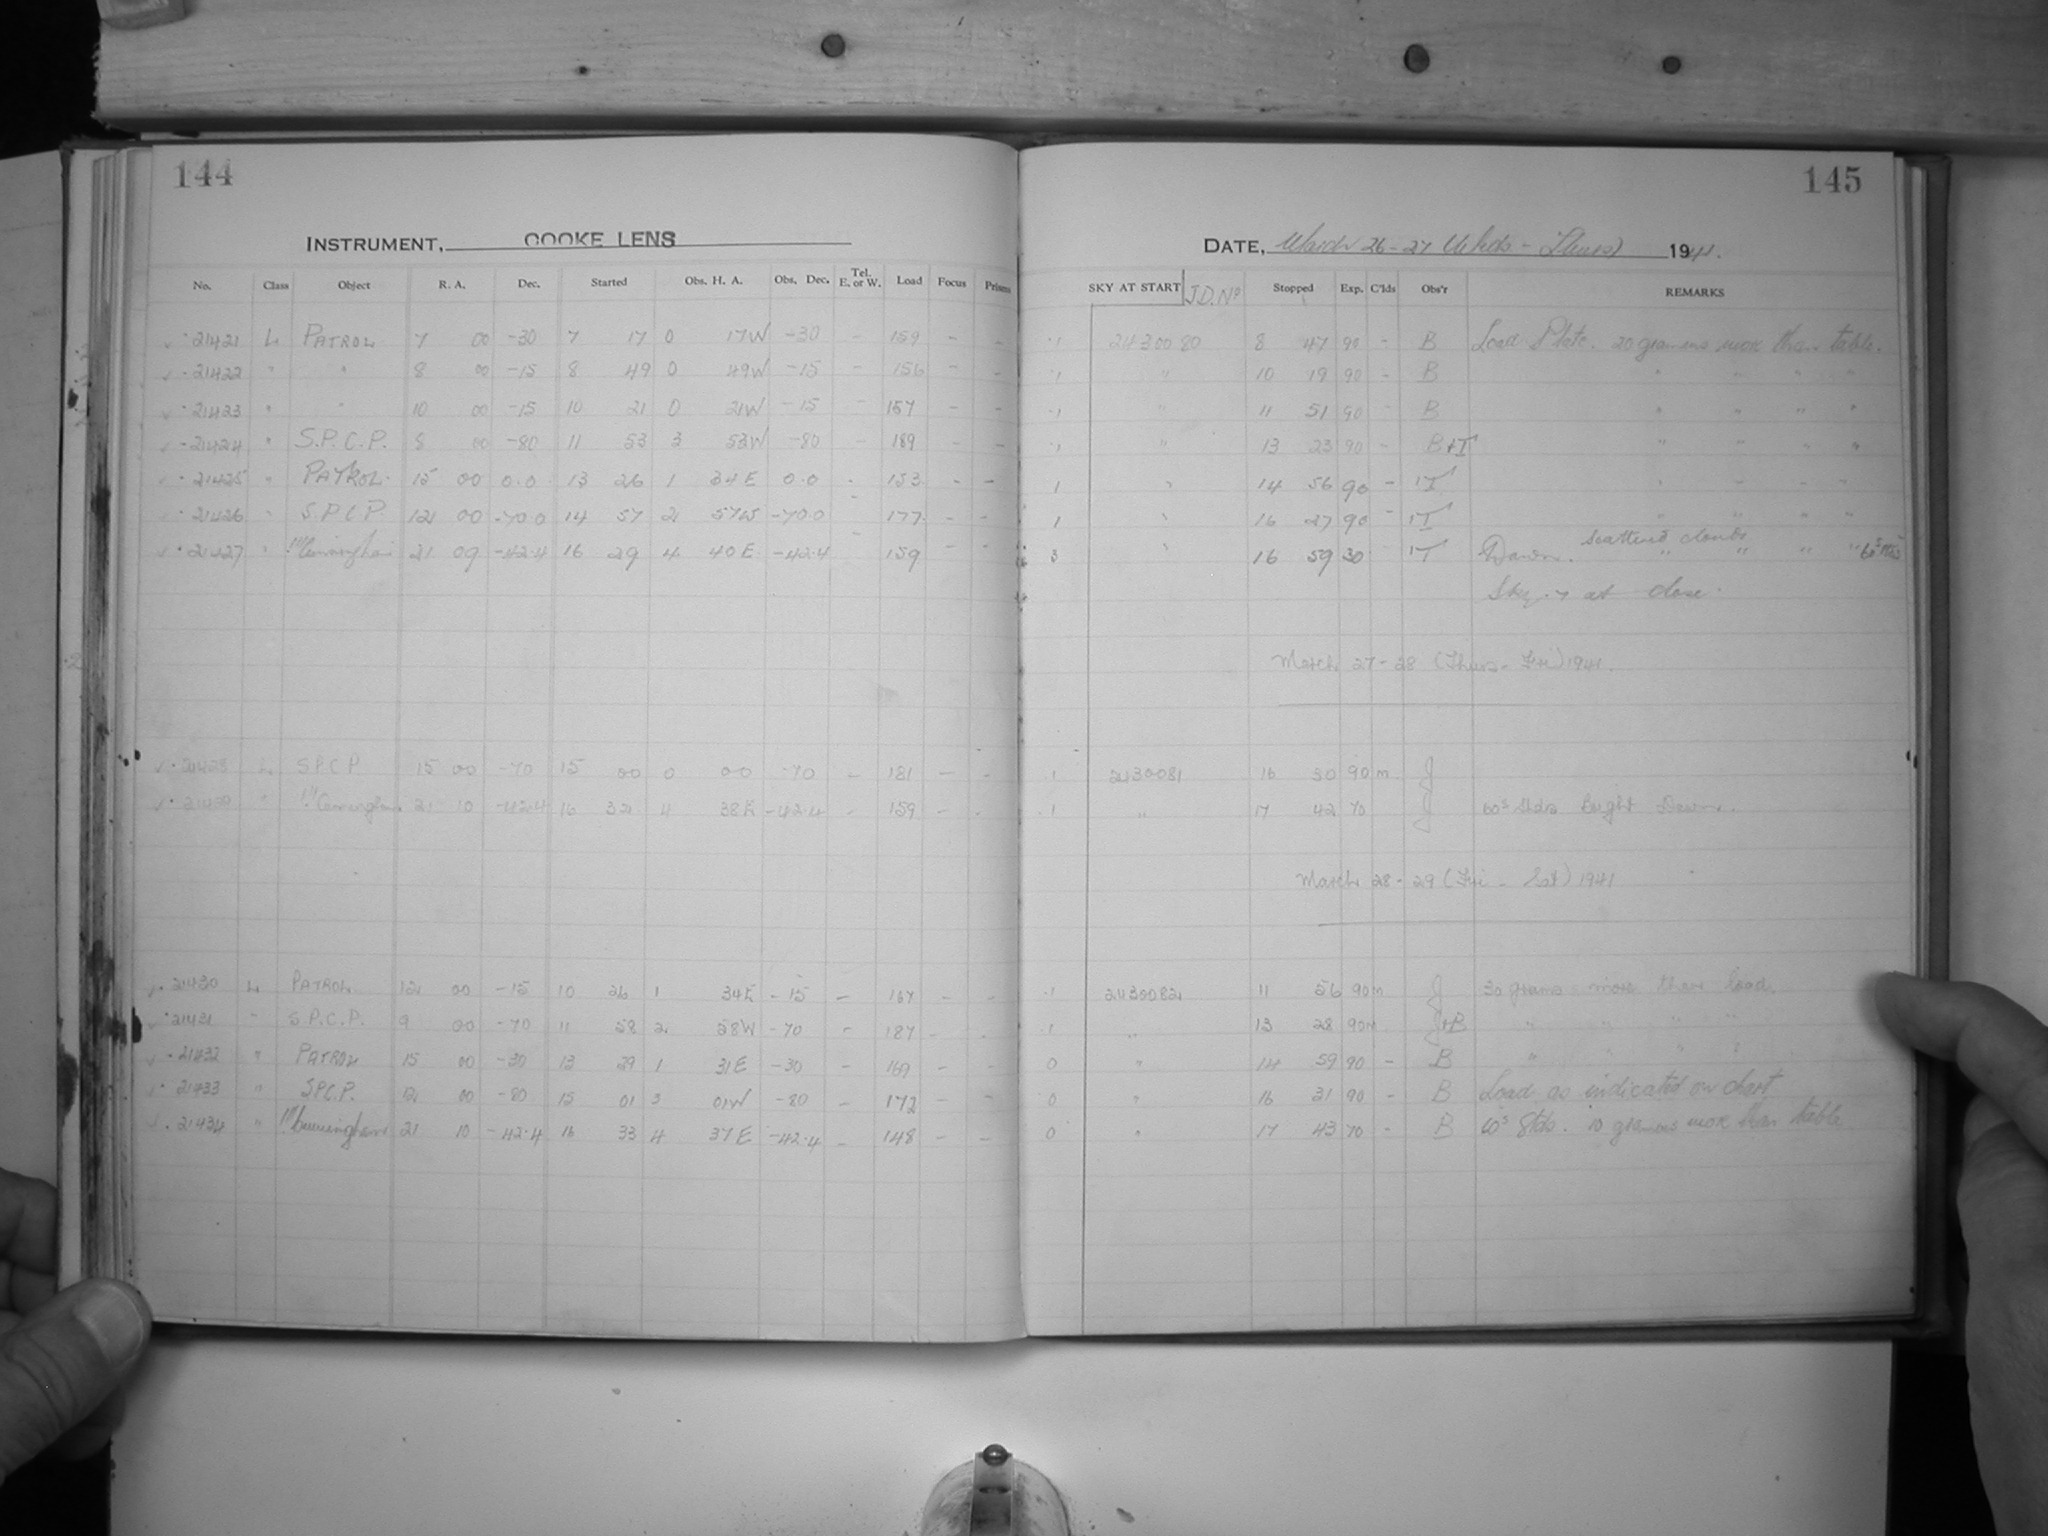 144
145
INSTRUMENT, COOKE LENS
DATE, March 26-27 Weds - Thurs) 1941.
No. Class Object R. A. Dec. Started Obs. H. A. Obs. Dec. Tel. E. or W. Load Focus Prisms SKY AT START J.D. No Stopped Exp. C'lds Obs'r REMARKS
21421 L PATROL 7 00 -30 7 17 0 17W -30 - 159 - - 1 2430080 8 47 90 - B Load Plate. 20 grammes more than table.
21422 " " 8 00 -15 8 49 0 49W -15 - 156 - - 1 " 10 19 90 - B " " " "
21423 " " 10 00 -15 10 21 0 21W -15 - 157 - - 1 " 11 51 90 - B " " " "
21424 " S.P.C.P. 8 00 -80 11 53 3 53W -80 - 189 - - 1 " 13 23 90 - B+T " " " "
21425 " PATROL. 15 00 0.0 13 26 1 34E 0.0 - 153 - - 1 " 14 56 90 - T " " " "
21426 " S.P.C.P. 12 00 -70.0 14 57 2 57W -70.0 - 177 - - 1 " 16 27 90 - T " " " "
21427 " Cunningham 21 09 -42.4 16 29 4 40E -42.4 159 - - 3 " 16 59 30 T Dawn. scattered clouds " " " " 60s stds
Sky . 7 at close.
March 27-28 (Thurs - Fri) 1941.
21428 L S.P.C.P. 15 00 -70 15 00 0 00 -70 - 181 - - 1 2430081 16 30 90m J
" Cunningham 21 10 -42.4 16 32 4 38E -42.4 - 159 - - 1 " 17 42 70 J 60s Stds Bright Dawn.
March 28-29 (Fri - Sat) 1941
21430 L PATROL 12 00 -15 10 26 1 34E -15 - 167 - - 1 2430082 11 56 90m J 30 grams more than load.
21431 " S.P.C.P. 9 00 -70 11 58 2 58W -70 - 187 - - 1 " 13 28 90m J+B " " " "
21432 " PATROL 15 00 -30 13 29 1 31E -30 - 169 - - 0 " 14 59 90 - B " " " "
21433 " S.P.C.P. 12 00 -80 15 01 3 01W -80 - 172 - - 0 " 16 31 90 - B Load as indicated on chart
21434 " Cunningham 21 10 -42.4 16 33 4 37E -42.4 - 148 - - 0 " 17 43 70 - B 60s Stds. 10 grammes more than table